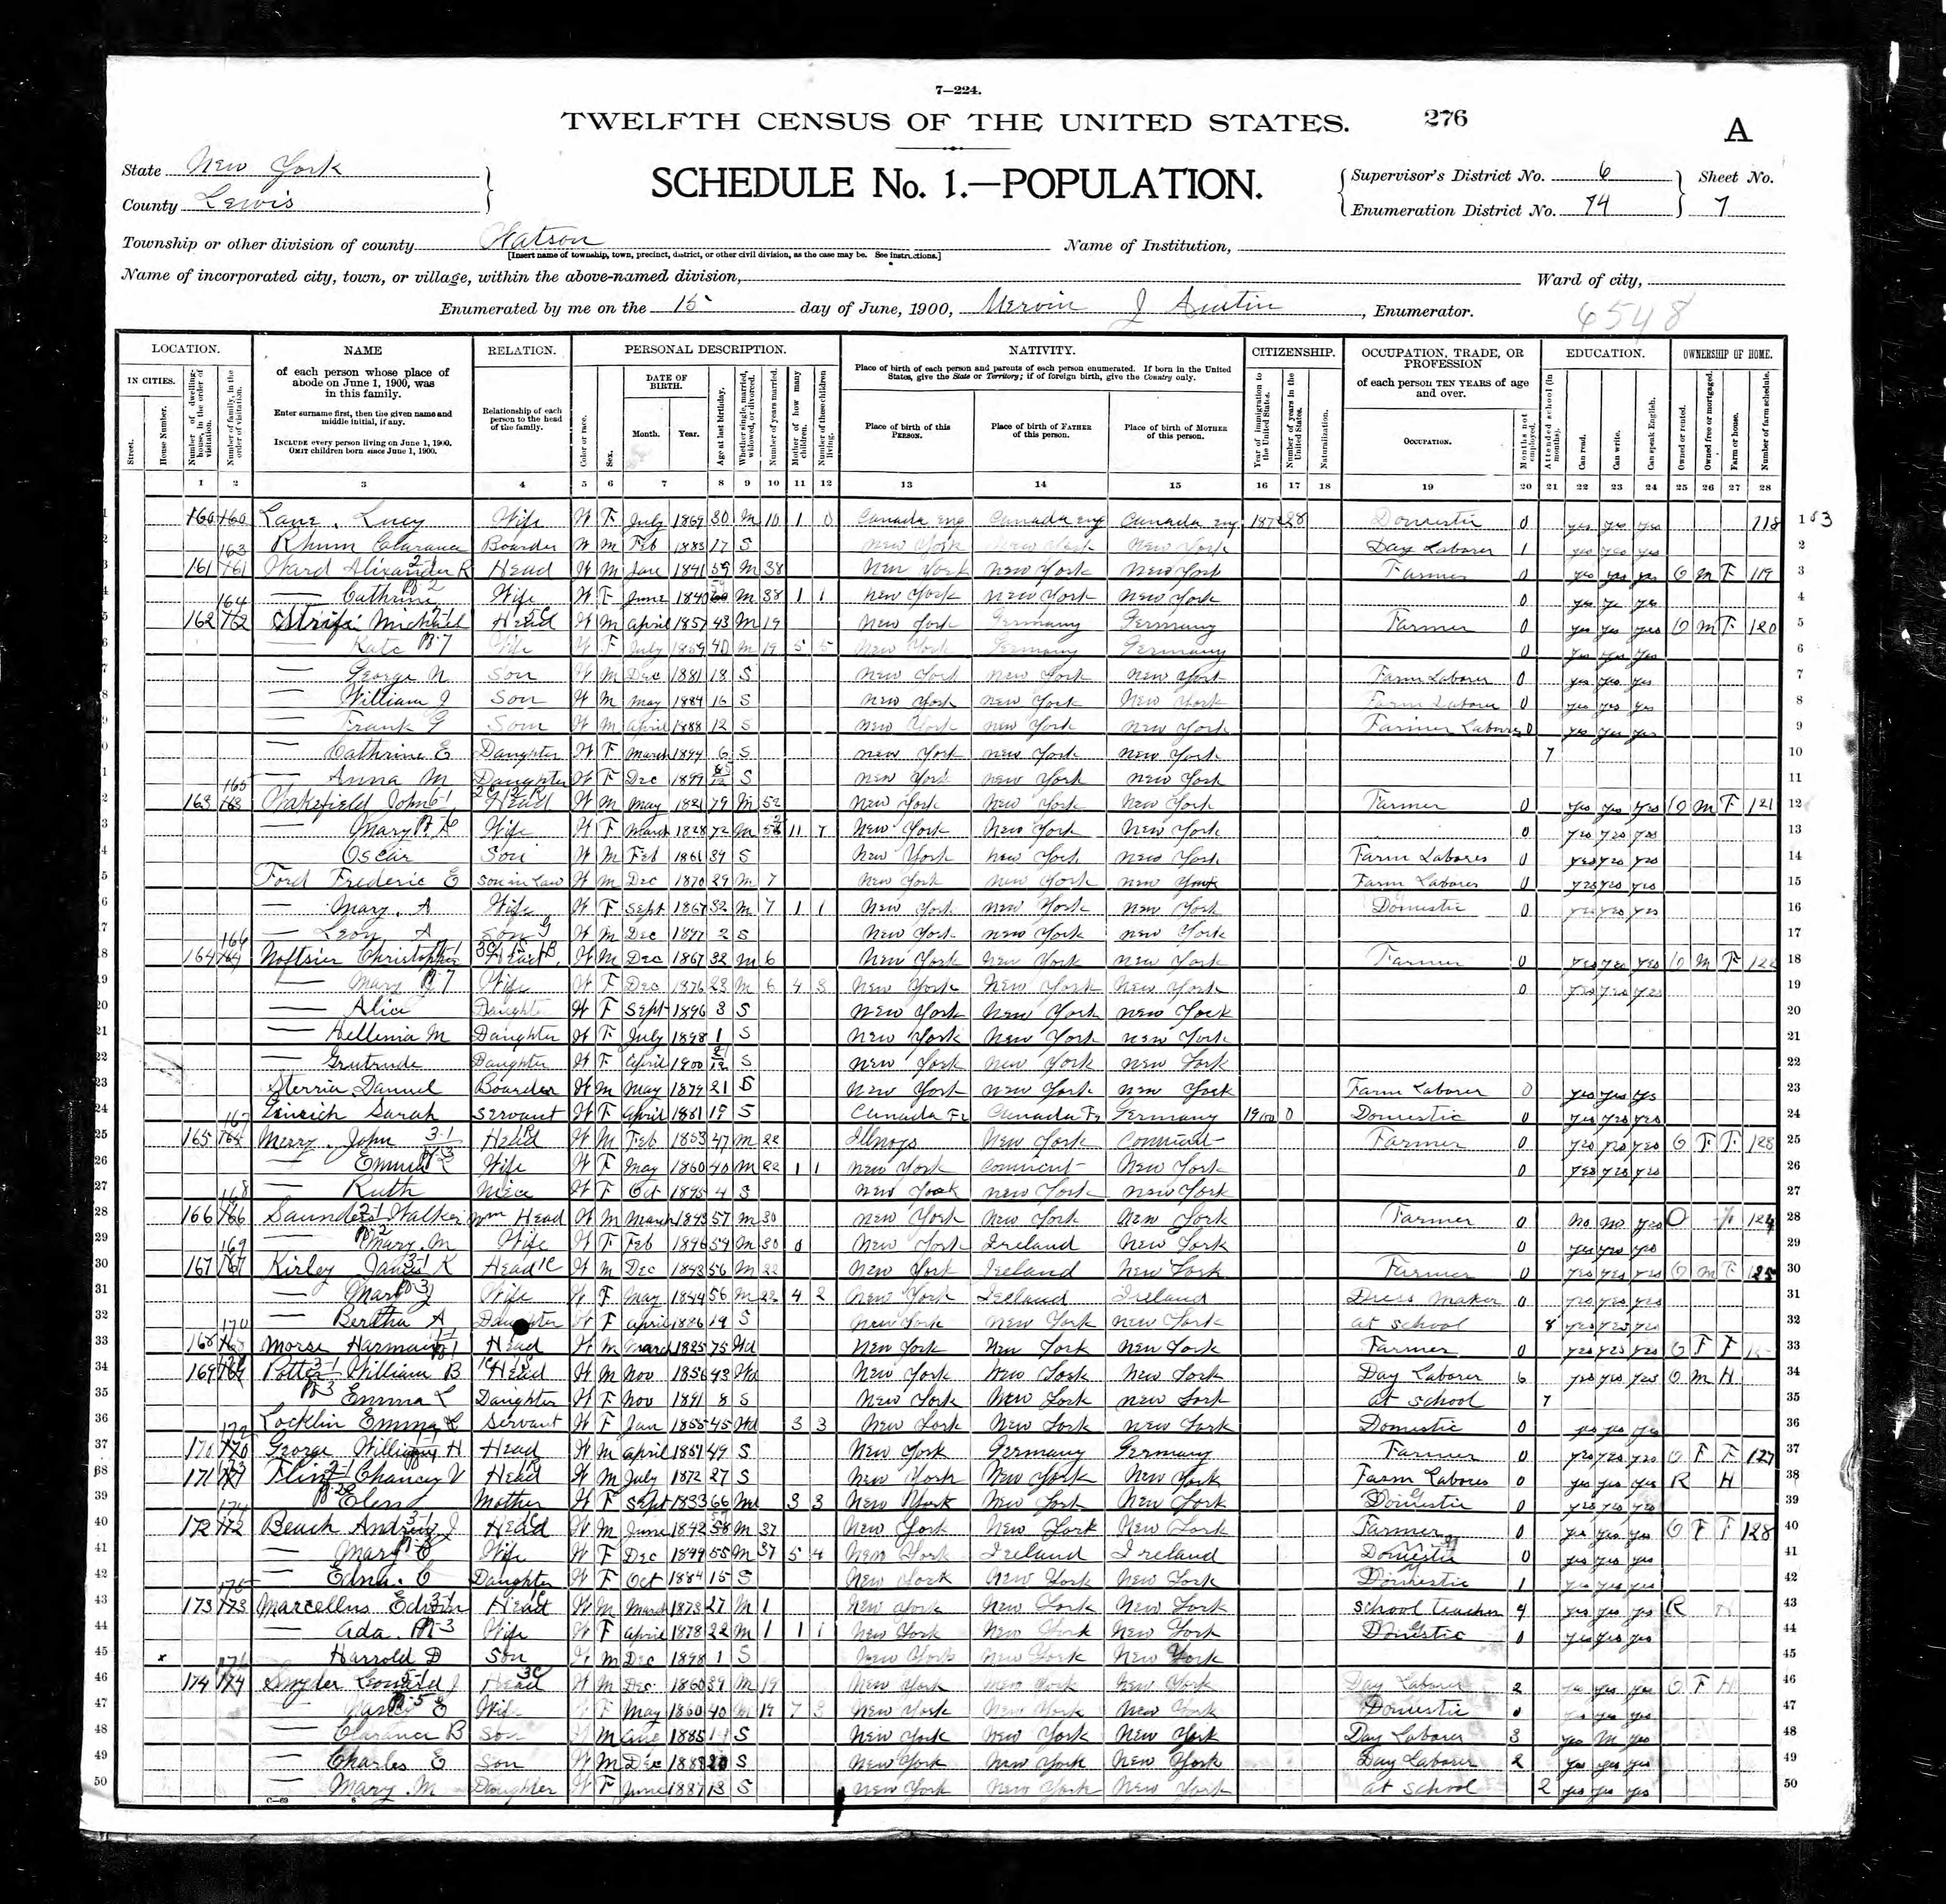 7—224.
TWELFTH CENSUS OF THE UNITED STATES. 276 A
State New York
SCHEDULE No. 1.—POPULATION.
Supervisor's District No. 6 Sheet No.
County Lewis
Enumeration District No. 74 7
Township or other division of county Watson Name of Institution,
[Insert name of township, town, precinct, district, or other civil division, as the case may be. See instructions.]
Name of incorporated city, town, or village, within the above-named division, Ward of city,
Enumerated by me on the 15 day of June, 1900, Mervin J Austin, Enumerator. 6548
LOCATION. NAME RELATION. PERSONAL DESCRIPTION. NATIVITY. CITIZENSHIP. OCCUPATION, TRADE, OR PROFESSION EDUCATION. OWNERSHIP OF HOME.
IN CITIES. Street. House Number. Number of dwelling-house, in the order of visitation. Number of family, in the order of visitation.
of each person whose place of abode on June 1, 1900, was in this family.
Enter surname first, then the given name and middle initial, if any.
INCLUDE every person living on June 1, 1900.
OMIT children born since June 1, 1900.
Relationship of each person to the head of the family.
Color or race. Sex. DATE OF BIRTH. Month. Year. Age at last birthday. Whether single, married, widowed, or divorced. Number of years married. Mother of how many children. Number of these children living.
Place of birth of each person and parents of each person enumerated. If born in the United States, give the State or Territory; if of foreign birth, give the Country only.
Place of birth of this PERSON. Place of birth of FATHER of this person. Place of birth of MOTHER of this person.
Year of immigration to the United States. Number of years in the United States. Naturalization.
of each person TEN YEARS of age and over.
OCCUPATION. Months not employed.
Attended school (in months). Can read. Can write. Can speak English.
Owned or rented. Owned free or mortgaged. Farm or house. Number of farm schedule.
1 2 3 4 5 6 7 8 9 10 11 12 13 14 15 16 17 18 19 20 21 22 23 24 25 26 27 28
160 160 Lane, Lucy Wife W F July 1869 30 M 10 1 0 Canada Eng Canada Eng Canada Eng 1872 28 Domestic 0 yes yes yes 118 1
Rhum Clarance Boarder W M Feb 1883 17 S New York New York New York Day Laborer 1 yes yes yes 2
161 161 Ward Alixander R Head W M Jan 1841 59 M 38 New York New York New York Farmer 0 yes yes yes O M F 119 3
— Cathrine Wife W F June 1840 M 38 1 1 New York New York New York 0 yes yes yes 4
162 162 Strife Michael Head W M April 1857 43 M 19 New York Germany Germany Farmer 0 yes yes yes O M F 120 5
— Kate Wife W F July 1859 40 M 19 5 5 New York Germany Germany 0 yes yes yes 6
— George N Son W M Dec 1881 18 S New York New York New York Farm Laborer 0 yes yes yes 7
— William J Son W M May 1884 16 S New York New York New York Farm Laborer 0 yes yes yes 8
— Frank G Son W M April 1888 12 S New York New York New York Farmer Laborer 0 yes yes yes 9
— Cathrine E Daughter W F March 1894 6 S New York New York New York 7 10
— Anna M Daughter W F Dec 1899 S New York New York New York 11
163 163 Wakefield John Head W M May 1821 79 M 52 New York New York New York Farmer 0 yes yes yes O M F 121 12
— Mary A Wife W F March 1828 72 M 52 11 7 New York New York New York 0 yes yes yes 13
— Oscar Son W M Feb 1861 39 S New York New York New York Farm Laborer 0 yes yes yes 14
Ford Frederic E Son in Law W M Dec 1870 29 M 7 New York New York New York Farm Laborer 0 yes yes yes 15
— Mary. A Wife W F Sept 1867 32 M 7 1 1 New York New York New York Domestic 0 yes yes yes 16
— Leon A Son W M Dec 1897 2 S New York New York New York 17
164 164 Noftsier Christopher Head W M Dec 1867 32 M 6 New York New York New York Farmer 0 yes yes yes O M F 122 18
— Mary Wife W F Dec 1876 23 M 6 4 3 New York New York New York 0 yes yes yes 19
— Alice Daughter W F Sept 1896 3 S New York New York New York 20
— Hellenia M Daughter W F July 1898 1 S New York New York New York 21
— Grutrude Daughter W F April 1900 2/12 S New York New York New York 22
Daniel Boarder W M May 1879 21 S New York New York New York Farm Laborer 0 yes yes yes 23
Sarah Servant W F April 1881 19 S Canada Fr Canada Fr Germany 1900 0 Domestic 0 yes yes yes 24
165 165 Merry. John Head W M Feb 1853 47 M 22 Illnoys New York Farmer 0 yes yes yes O F F 123 25
— Emma Wife W F May 1860 40 M 22 1 1 New York New York 0 yes yes yes 26
— Ruth Niece W F Oct 1895 4 S New York New York New York 27
166 166 Saunders Walker Wm Head W M March 1843 57 M 30 New York New York New York Farmer 0 No No yes O 124 28
Mary. M Wife W F Feb 1846 54 M 30 0 New York Ireland New York 0 yes yes yes 29
167 167 Kirley James K Head W M Dec 1843 56 M 22 New York Ireland New York Farmer 0 yes yes yes O M F 125 30
— Mary J Wife W F May 1844 56 M 22 4 2 New York Ireland Ireland Dress Maker 0 yes yes yes 31
— Bertha A, Daughter W F April 1886 14 S New York New York New York At School 8 yes yes yes 32
168 168 Morse Harman Head W M March 1825 75 Wd New York New York New York Farmer 0 yes yes yes O F F 33
169 169 Potter William B Head W M Nov 1856 43 Wd New York New York New York Day Laborer 6 yes yes yes O M H 34
Emma L Daughter W F Nov 1891 8 S New York New York New York At School 7 35
Locklin Emma L Servant W F Jan 1855 45 Wd 3 3 New York New York New York Domestic 0 yes yes yes 36
170 170 George William H Head W M April 1851 49 S New York Germany Germany Farmer 0 yes yes yes O F F 127 37
171 171 Flint Chancey V Head W M July 1872 27 S New York New York New York Farm Laborer 0 yes yes yes R H 38
Elen Mother W F Sept 1833 66 Wd 3 3 New York New York New York Domestic 0 yes yes yes 39
172 172 Beach Andrew J Head W M June 1842 M 37 New York New York New York Farmer 0 yes yes yes O F F 128 40
— Mary C Wife W F Dec 1844 55 M 37 5 4 New York Ireland Ireland Domestic 0 yes yes yes 41
— Edna. C Daughter W F Oct 1884 15 S New York New York New York Domestic 1 yes yes yes 42
173 173 Marcellus Edwin Head W M March 1873 27 M 1 New York New York New York School Teacher 4 yes yes yes R H 43
— Ada. Wife W F April 1878 22 M 1 1 1 New York New York New York Domestic 0 yes yes yes 44
Harrold D Son W M Dec 1898 1 S New York New York New York 45
174 174 Snyder J Head W M Dec 1860 39 M 19 New York New York New York Day Laborer 2 yes yes yes O F H 46
E Wife W F May 1860 40 M 19 7 3 New York New York New York Domestic yes yes yes 47
— Clarance B Son W M 1885 S New York New York New York Day Laborer 3 yes yes 48
— Charles E Son W M Dec S New York New York New York Day Laborer 2 yes yes yes 49
— Mary. M Daughter W F June 1887 13 S New York New York New York At School 2 yes yes yes 50